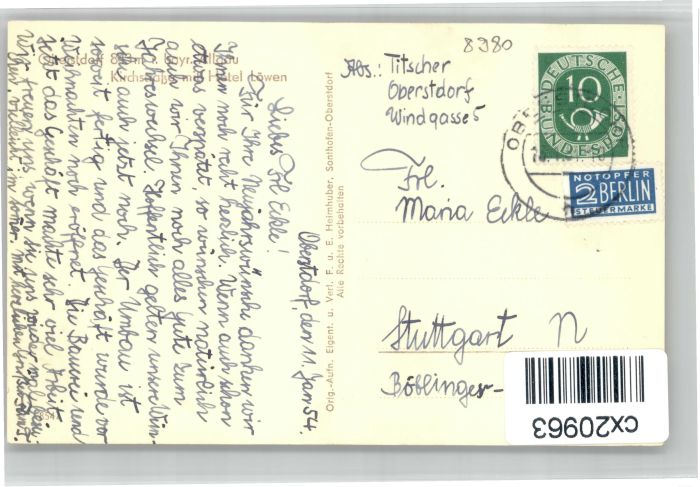 8980
Abs.: Titscher
Oberstdorf
Windgasse 5
DEUTSCHE
10
BUNDESPOST
NOTOPFER
2 BERLIN
STEUERMARKE
Frl.
Maria Eckle
Stuttgart N
Böblinger-
cx20963
Oberstdorf Bayr. Allgäu
Kirchstraße mit Hotel Löwen
Orig.-Aufn. Eigent. u. Verl. F. u. E. Heimhuber, Sonthofen-Oberstdorf
Alle Rechte vorbehalten
Oberstdorf, den 11. Jan. 54.
Liebes Frl. Eckle!
Für Ihre Neujahrswünsche danken wir
Ihnen noch recht herzlich. Wenn auch schon
etwas verspätet, so wünschen natürlich
auch wir Ihnen noch alles Gute zum
Jahreswechsel. Hoffentlich gelten unsere Wün-
sche auch jetzt noch. Der Umbau ist
soweit fertig und das Geschäft wurde vor
Weihnachten noch eröffnet. Die Bauerei und
jetzt das Geschäft machte sehr viel Arbeit.
Wir freuen uns, wenn Sie uns wieder mal